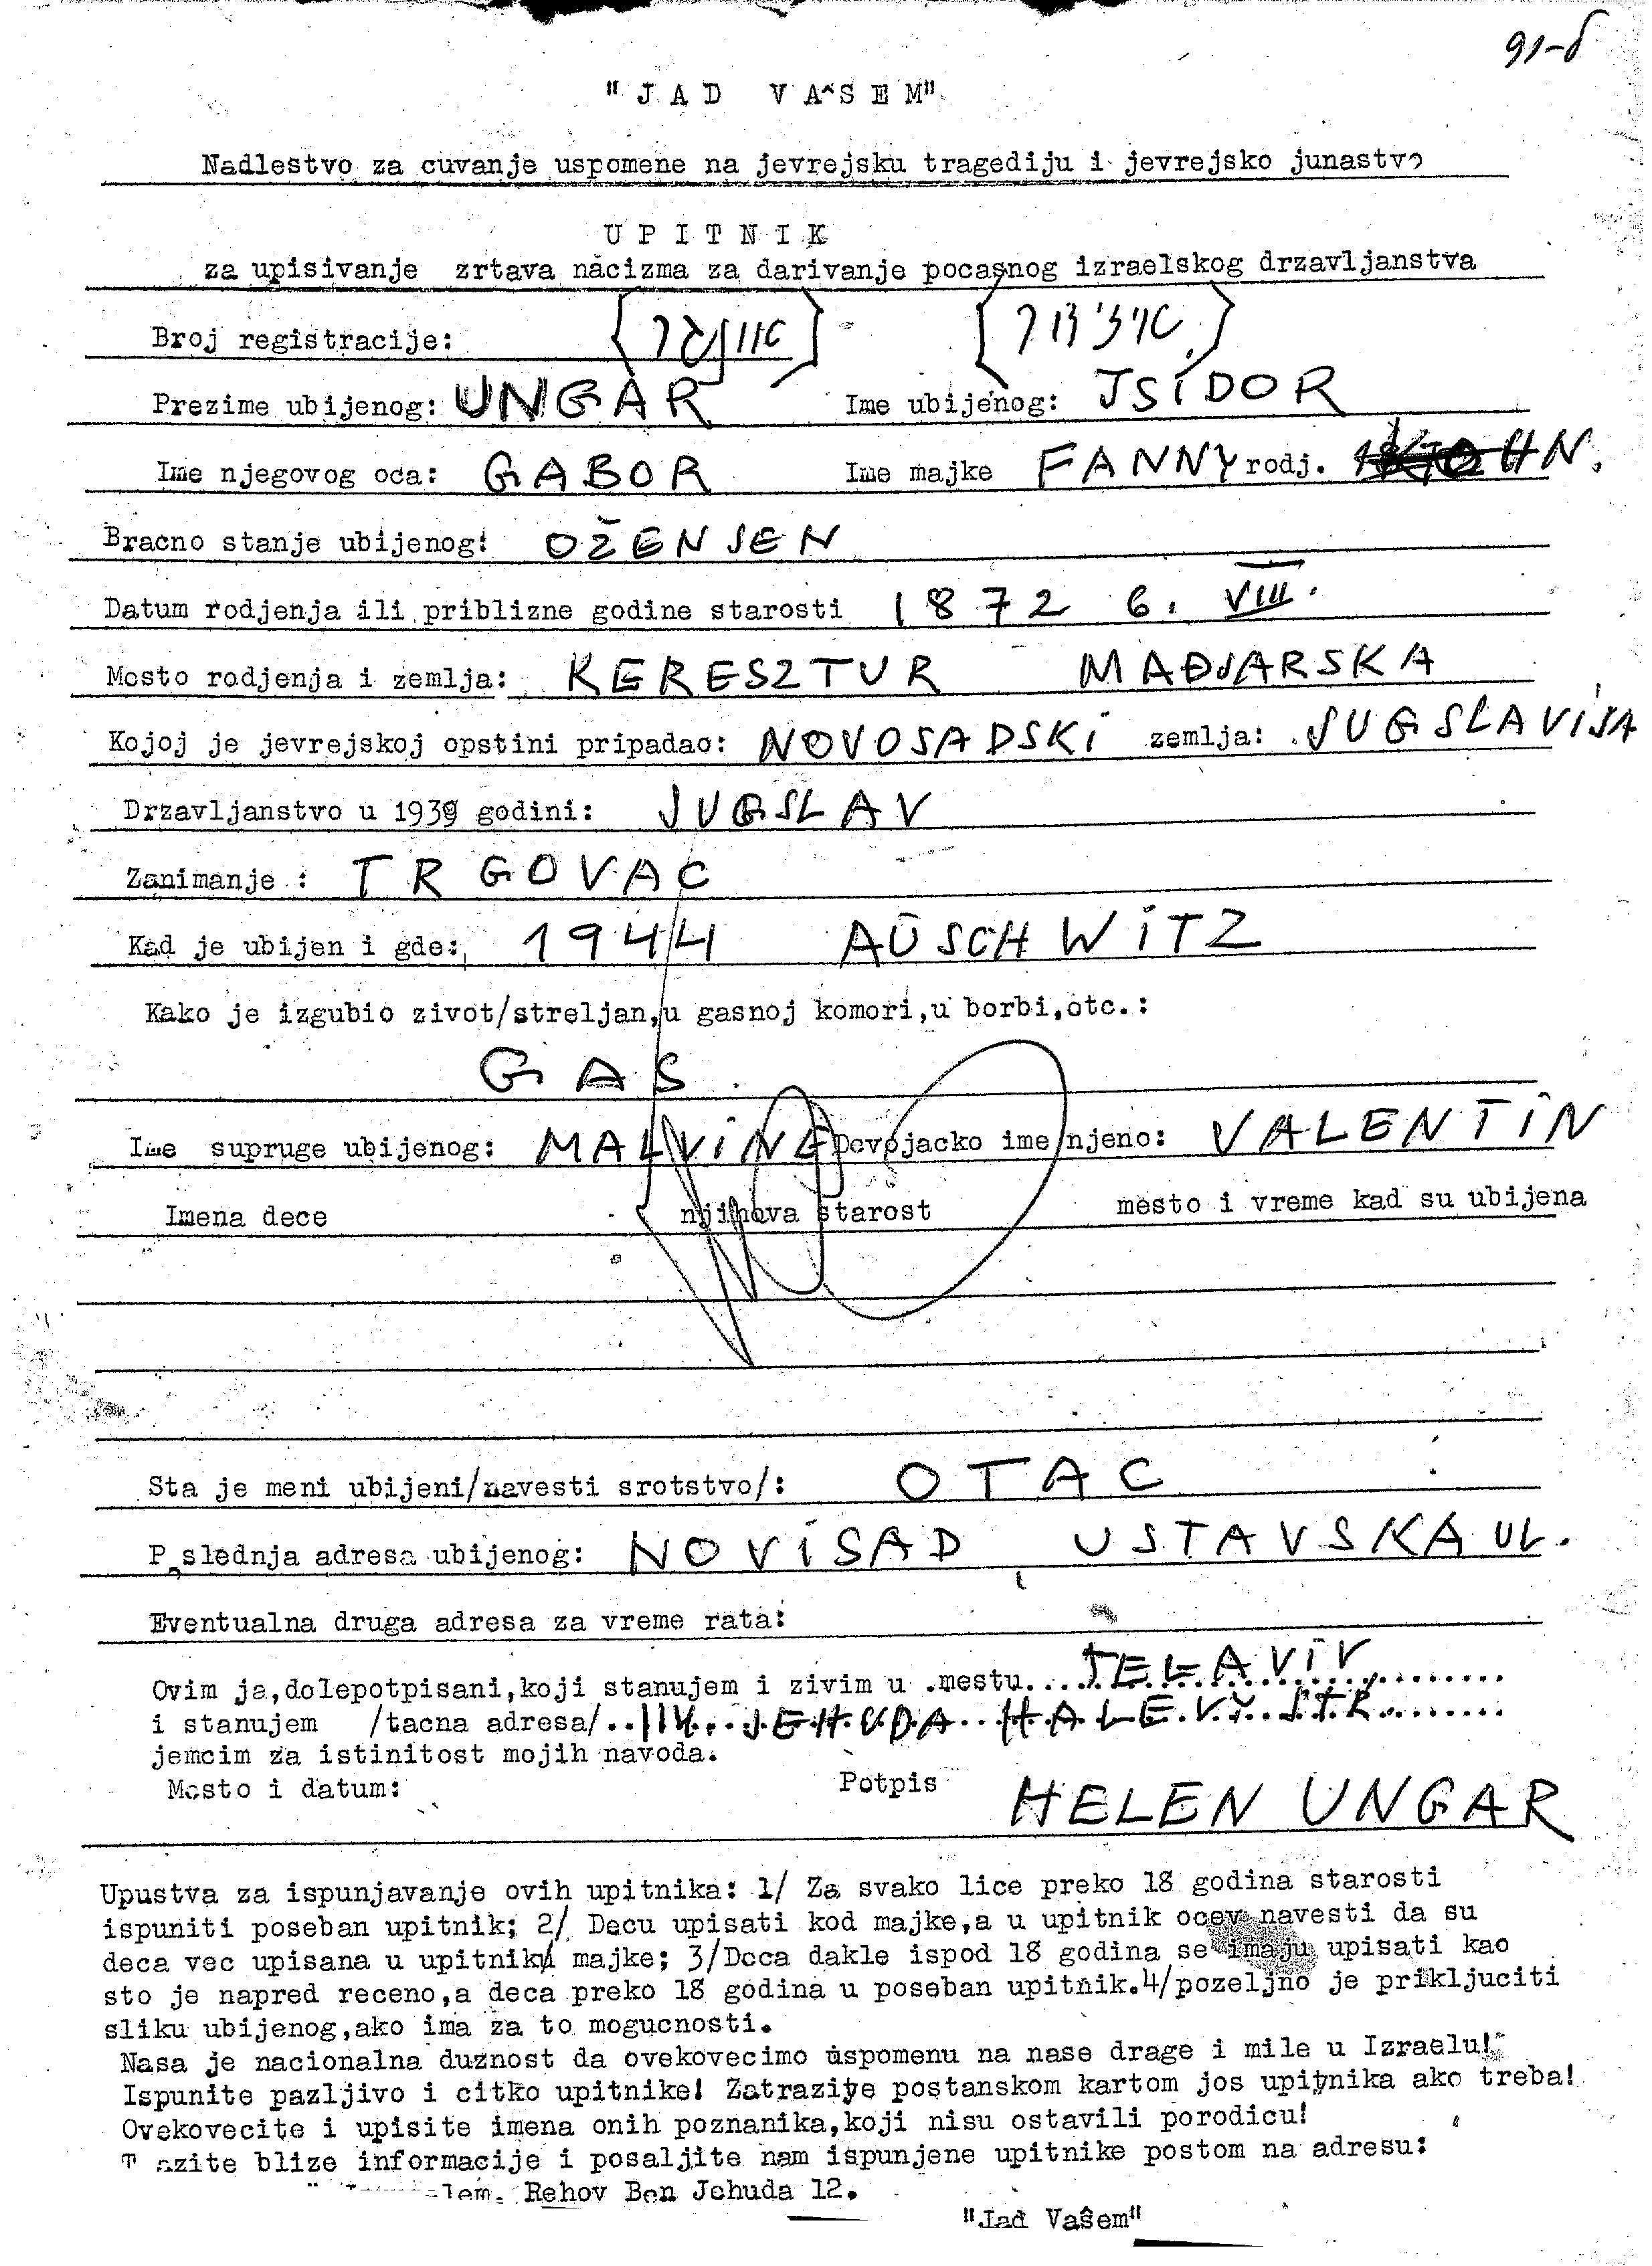 91-δ
"JAD VA^SEM"
Nadlestvo za cuvanje uspomene na jevrejsku tragediju i jevrejsko junastvo
UPITNIK
za upisivanje zrtava nacizma za darivanje pocasnog izraelskog drzavljanstva
Broj registracije: [אונגר] [איזידור]
Prezime ubijenog: UNGAR Ime ubijenog: ISIDOR
Ime njegovog oca: GABOR Ime majke FANNY rodj. KOHN.
Bracno stanje ubijenog: OŽENJEN
Datum rodjenja ili priblizne godine starosti 1872 6. VIII.
Mesto rodjenja i zemlja: KERESZTUR MAĐJARSKA
Kojoj je jevrejskoj opstini pripadao: NOVOSADSKi zemlja: JUGSLAVIJA
Drzavljanstvo u 1939 godini: JUGSLAV
Zanimanje : TRGOVAC
Kad je ubijen i gde: 1944 AUSCHWITZ
Kako je izgubio zivot/streljan,u gasnoj komori,u borbi,otc.:
GAS
Ime supruge ubijenog: MALVINE Devojacko ime njeno: VALENTIN
Imena dece njihova starost mesto i vreme kad su ubijena
Sta je meni ubijeni/navesti srotstvo/: OTAC
Poslednja adresa ubijenog: NOVISAD, USTAVSKA UL.
Eventualna druga adresa za vreme rata:
Ovim ja,dolepotpisani,koji stanujem i zivim u .mestu....TELAVIV.........
i stanujem /tacna adresa/..114...JEHUDA..HALEVY.STR.........
jemcim za istinitost mojih navoda.
Mesto i datum: Potpis HELEN UNGAR
Upustva za ispunjavanje ovih upitnika: 1/ Za svako lice preko 18 godina starosti
ispuniti poseban upitnik; 2/ Decu upisati kod majke,a u upitnik ocev navesti da su
deca vec upisana u upitniku majke; 3/Deca dakle ispod 18 godina se imaju upisati kao
sto je napred receno,a deca preko 18 godina u poseban upitnik.4/pozeljno je prikljuciti
sliku ubijenog,ako ima za to mogucnosti.
Nasa je nacionalna duznost da ovekovecimo uspomenu na nase drage i mile u Izraelu!
Ispunite pazljivo i citko upitnike! Zatrazite postanskom kartom jos upitnika ako treba!
Ovekovecite i upisite imena onih poznanika,koji nisu ostavili porodicu!
azite blize informacije i posaljite nam ispunjene upitnike postom na adresu:
lem. Rehov Ben Jehuda 12.
"Jad Vašem"